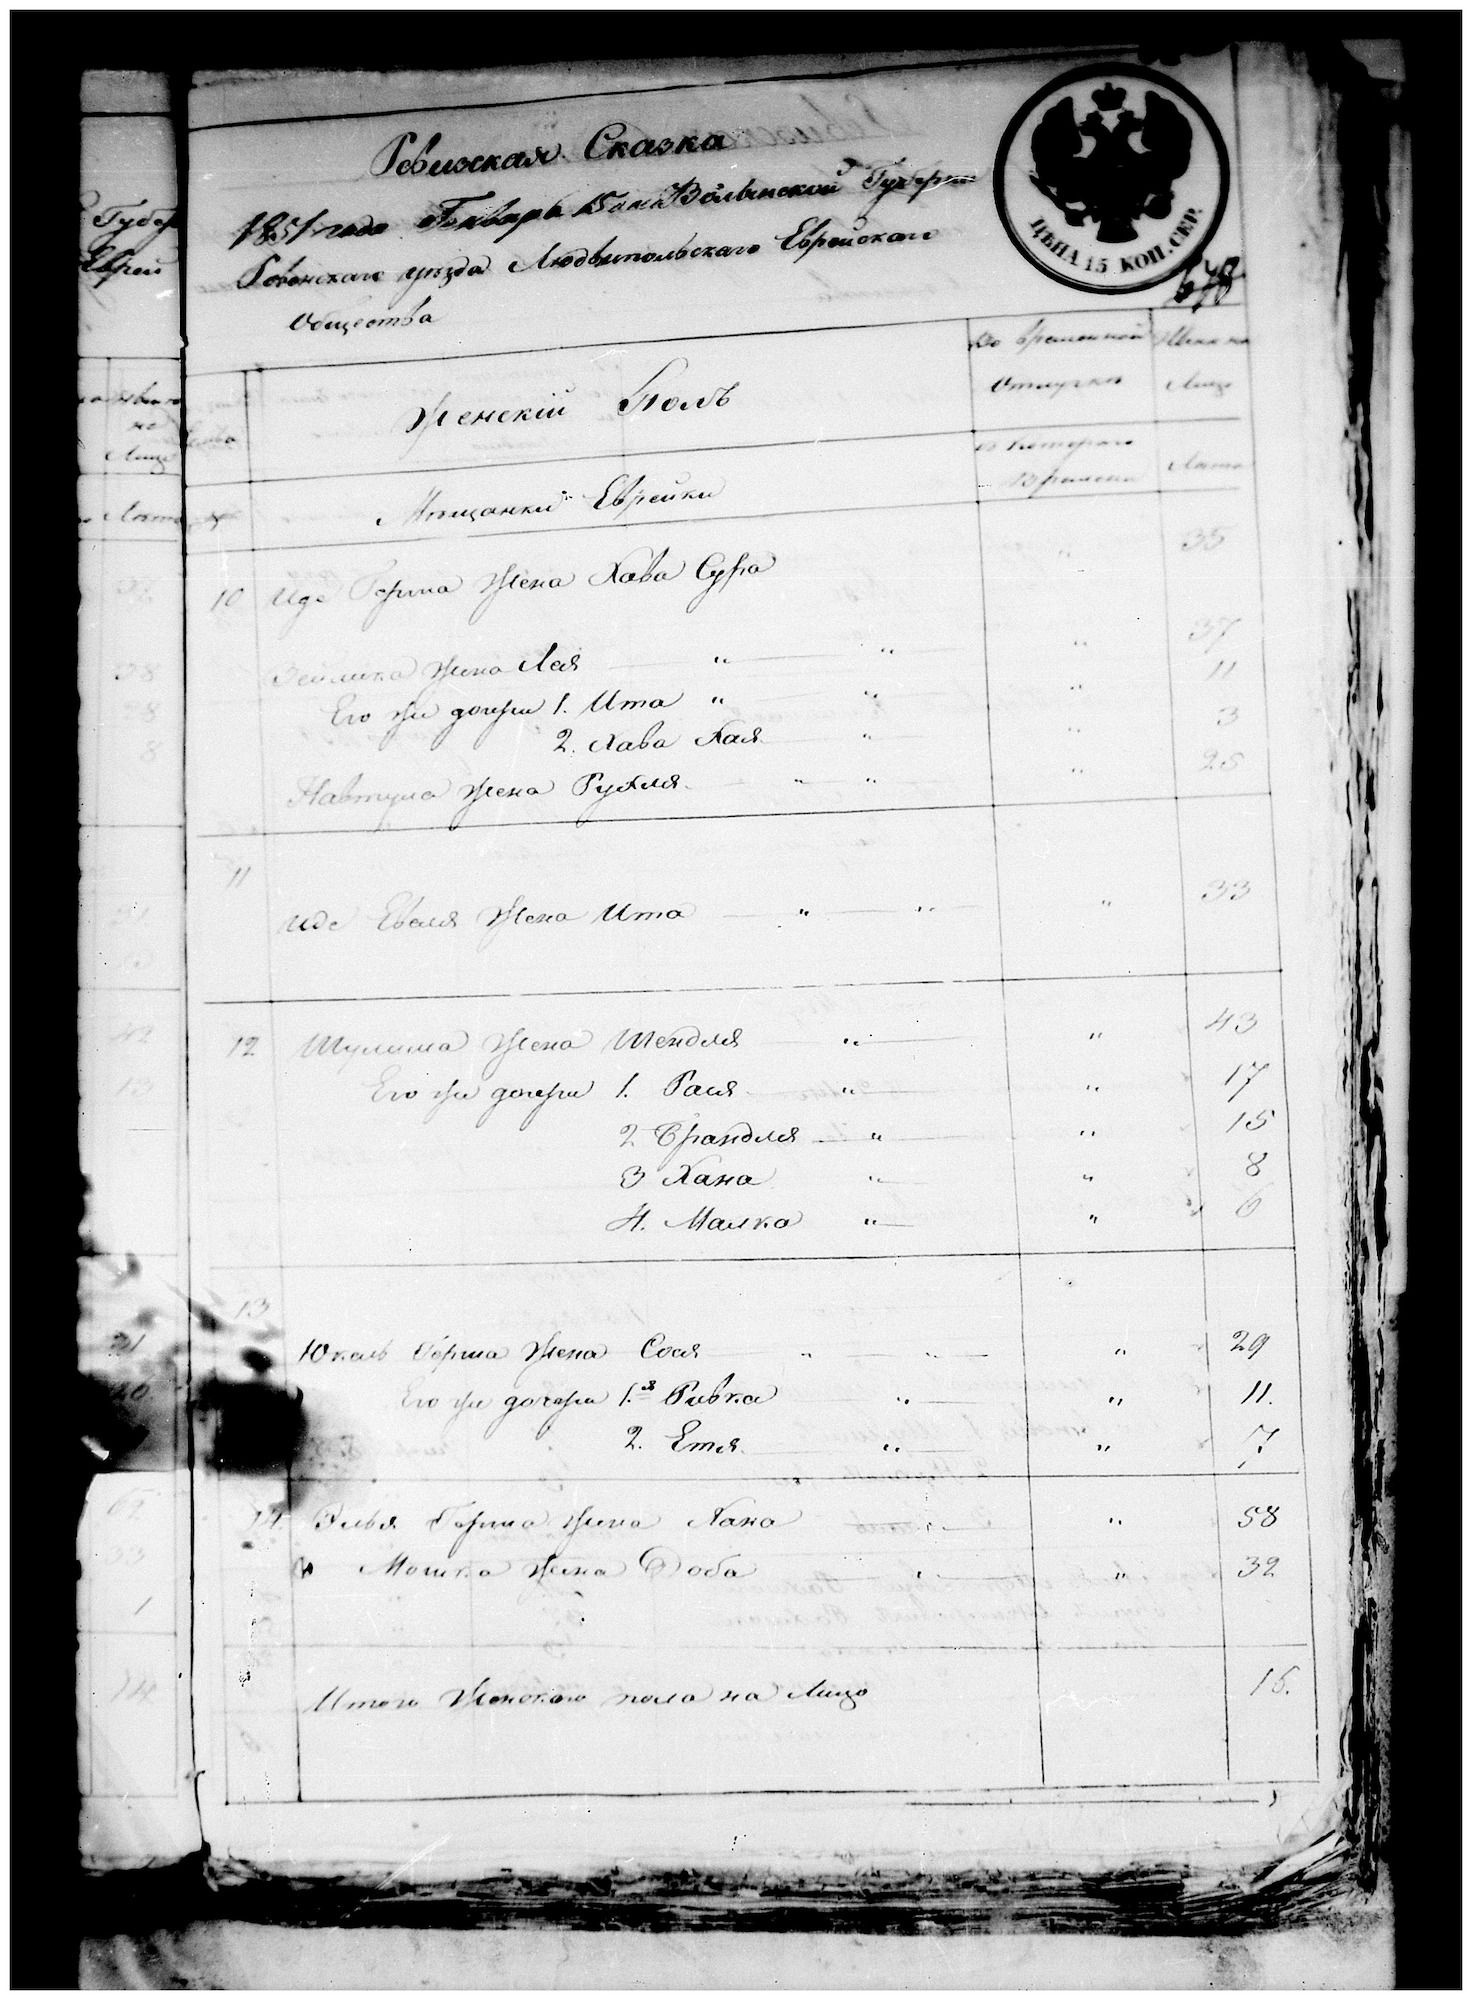 Ревизская Сказка
1851 года Генваря 15 дня Волынской Губерни
Ровенскаго уезда Людвипольскаго Еврейскаго
Общества
ЦѢНА 15 КОП. СЕР.
648
Губер
Еврей
Женскій Полъ
Во временной
отлучке
Ныне на
Лицо
на
Лицо
Мещанки Еврейки
съ Котораго
времени
Лета
Лета
10 Иде Герша жена Хава Сура " 35
Зелмана жена Лея " " " 37
Его же дочери 1. Ита " " " 11
2. Хава Хая " " 3
Навтула жена Рухля " " " 25
11
Иде Евеля жена Ита " " " 33
12 Шулима жена Шендля " " 43
Его же дочери 1. Рася " " 17
2 Брандля " " 15
3 Хана " " 8
4. Малка " " 6
13
Юкель Герша жена Сося " " " 29
Его же дочери 1.я Ривка " " 11.
2. Етя " " 7
14. Элья Герша жена Хана " " 58
Мошка жена Доба " " 32
Итого женскаго пола на лицо 15.